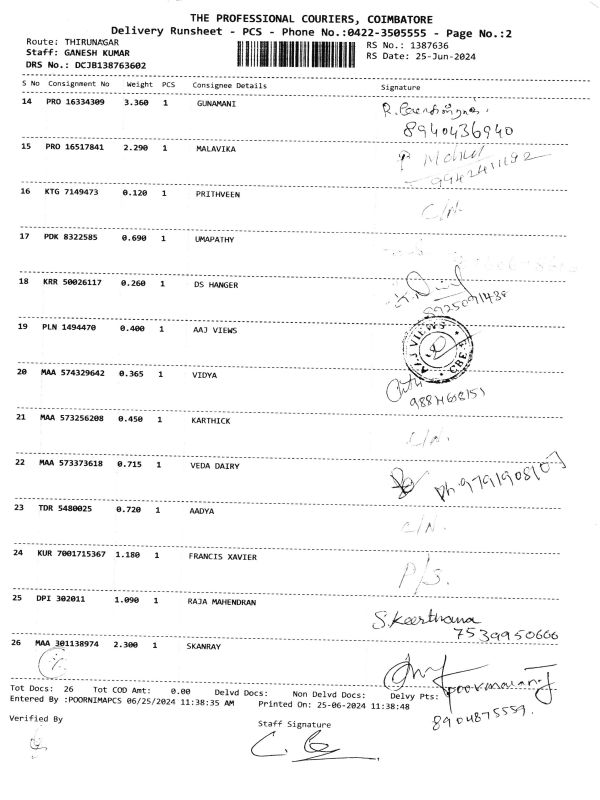 THE PROFESSIONAL COURIERS, COIMBATORE
Delivery Runsheet - PCS - Phone No.:0422-3505555 - Page No.:2
Route: THIRUNAGAR
RS No.: 1387636
Staff: GANESH KUMAR
RS Date: 25-Jun-2024
DRS No.: DCJB138763602
S No Consignment No Weight PCS Consignee Details Signature
14 PRO 16334309 3.360 1 GUNAMANI
8940436940
15 PRO 16517841 2.290 1 MALAVIKA
16 KTG 7149473 0.120 1 PRITHVEEN
C/N.
17 PDK 8322585 0.690 1 UMAPATHY
18 KRR 50026117 0.260 1 DS HANGER
8925091438
19 PLN 1494470 0.400 1 AAJ VIEWS
AAJ VIEWS CBE
20 MAA 574329642 0.365 1 VIDYA
21 MAA 573256208 0.450 1 KARTHICK
C/N.
22 MAA 573373618 0.715 1 VEDA DAIRY
Ph 9791908107
23 TDR 5480025 0.720 1 AADYA
C/N.
24 KUR 7001715367 1.180 1 FRANCIS XAVIER
P/S.
25 DPI 302011 1.090 1 RAJA MAHENDRAN
S.Keerthana
7539950666
26 MAA 301138974 2.300 1 SKANRAY
Tot Docs: 26 Tot COD Amt: 0.00 Delvd Docs: Non Delvd Docs: Delvy Pts:
Entered By :POORNIMAPCS 06/25/2024 11:38:35 AM Printed On: 25-06-2024 11:38:48
8904875559.
Verified By
Staff Signature